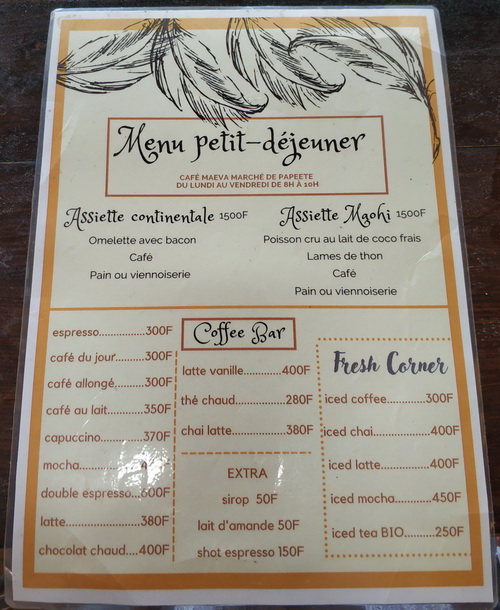 Menu petit-déjeuner
CAFÉ MAEVA MARCHÉ DE PAPEETE
DU LUNDI AU VENDREDI DE 8H À 10H
Assiette continentale 1500F
Omelette avec bacon
Café
Pain ou viennoiserie
Assiette Maohi 1500F
Poisson cru au lait de coco frais
Lames de thon
Café
Pain ou viennoiserie
espresso...............300F
café du jour.........300F
café allongé.........300F
café au lait...........350F
capuccino............370F
mocha
double espresso...600F
latte....................380F
chocolat chaud....400F
Coffee Bar
latte vanille...........400F
thé chaud..............280F
chai latte...............380F
EXTRA
sirop 50F
lait d'amande 50F
shot espresso 150F
Fresh Corner
iced coffee...........300F
iced chai...............400F
iced latte..............400F
iced mocha..........450F
iced tea BIO.........250F